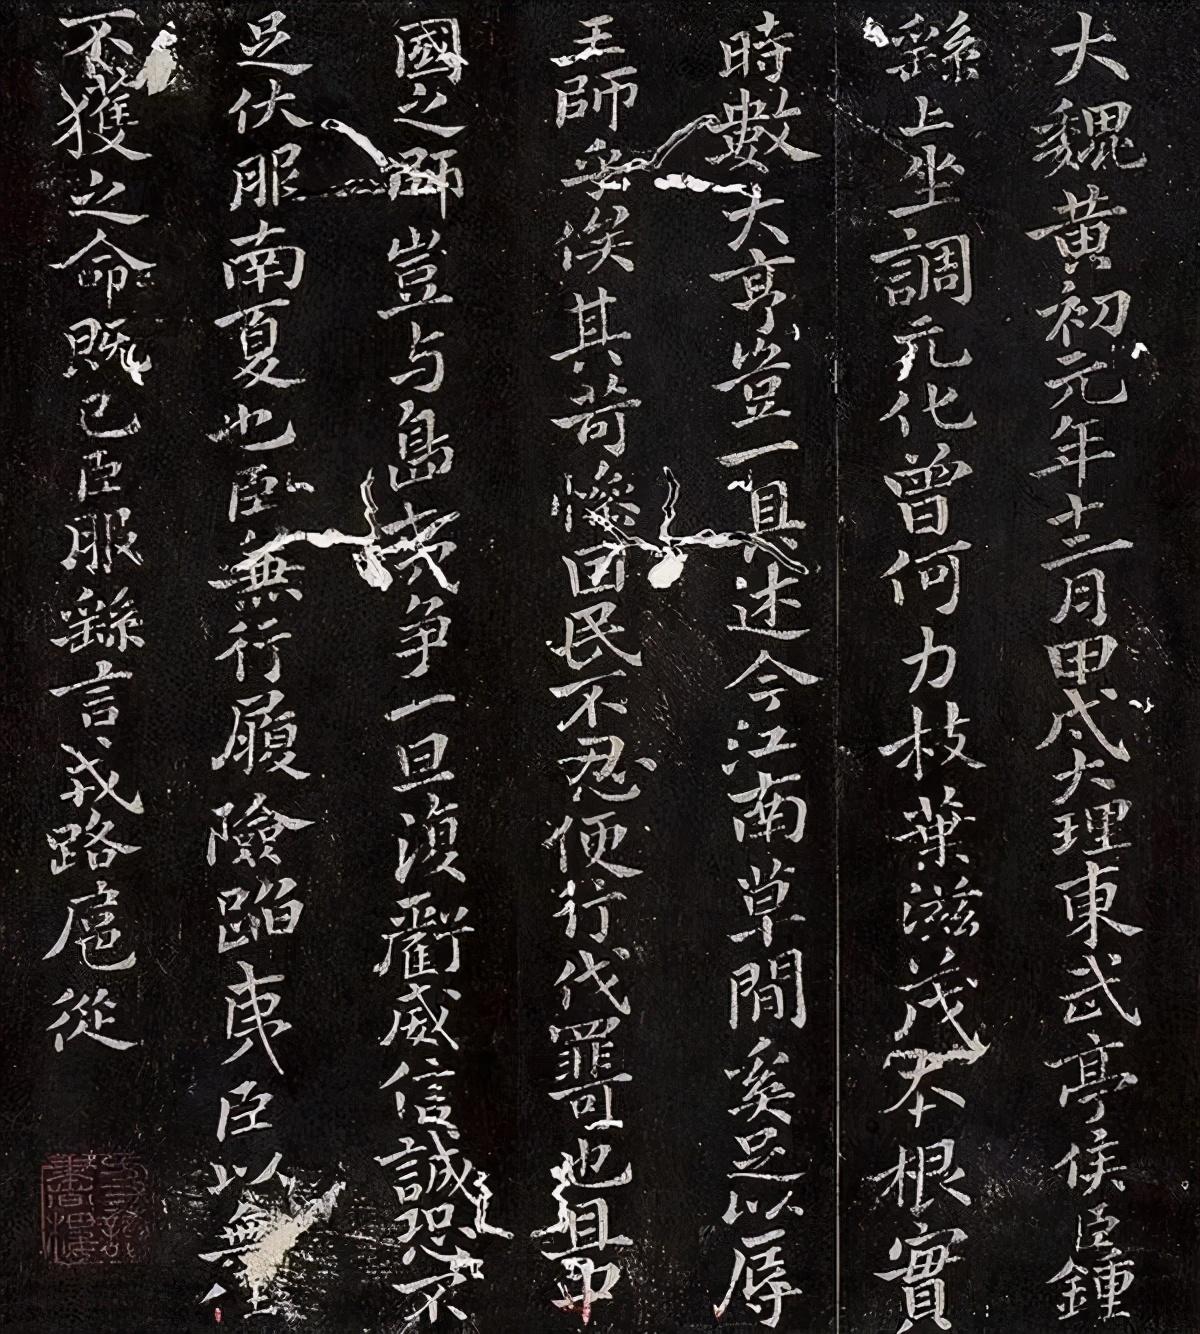 大魏黃初元年十二月甲戌大理東武亭侯臣鍾
繇上坐調元化曾何力枝葉滋茂本根實
時數大亨豈一具述今江南草間奚足以辱
王師乎俟其苛慘因民不忍便行伐罪可也且中
國之師豈与島夷爭一旦須衢威信誠恐不
足伏服南夏也臣無行履險蹈夷臣以無
不獲之命既已臣服繇言戎路扈從